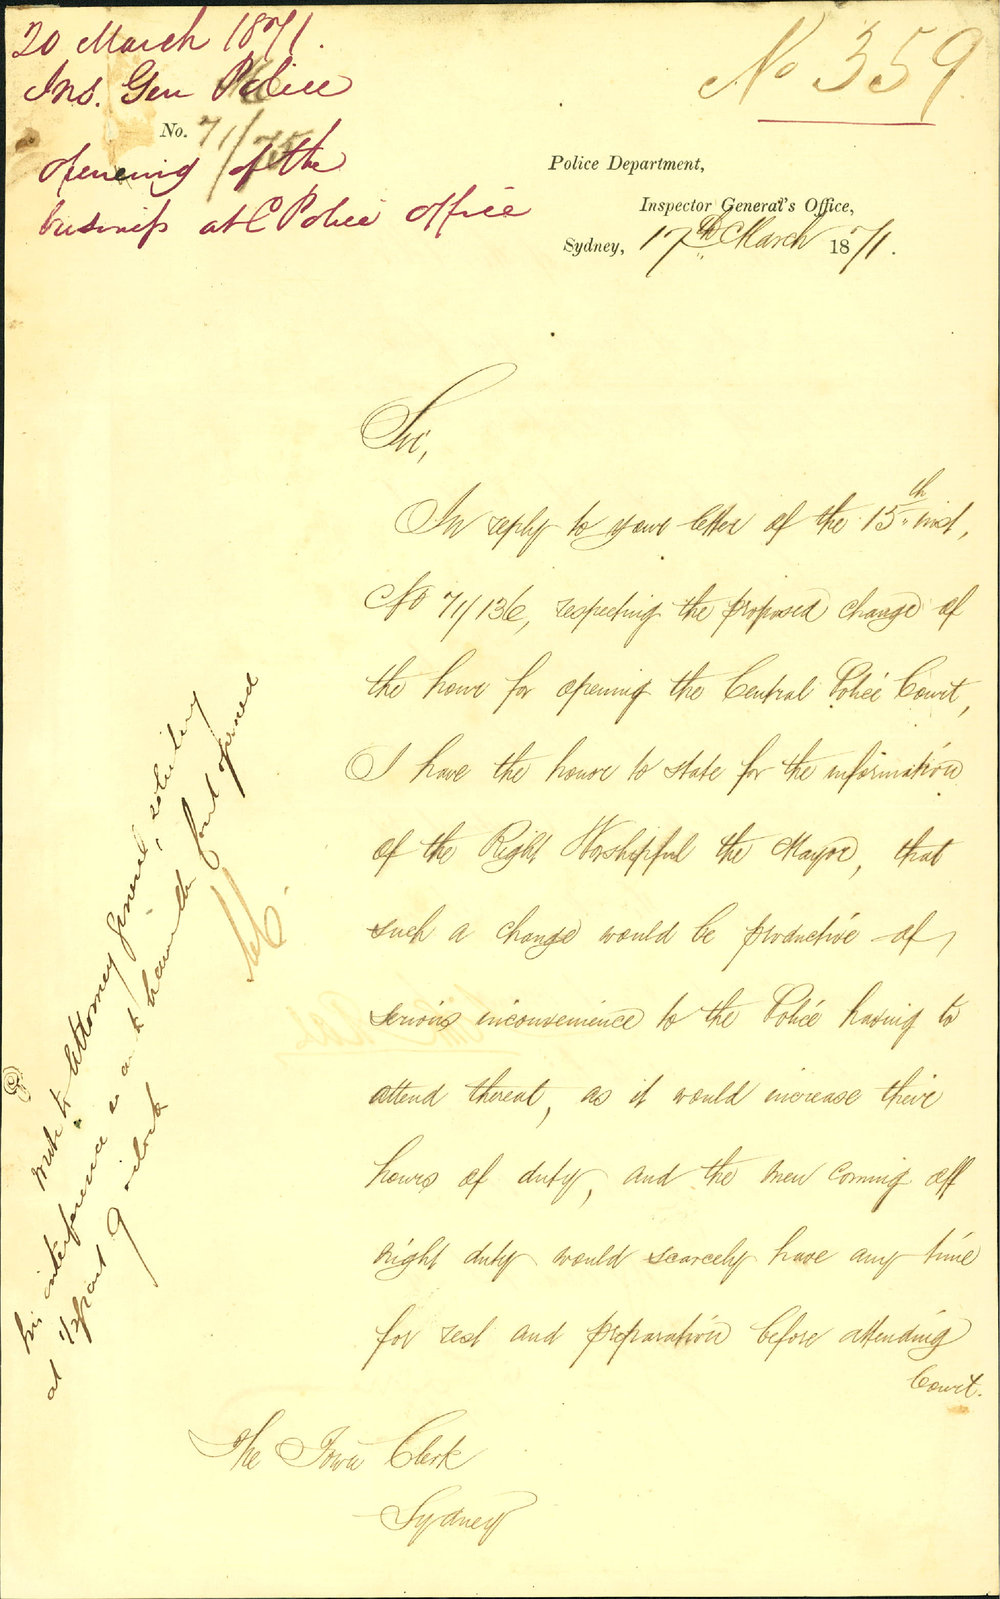 20 March 1871.
Ins. Gen Police
No. 71/75
opening of the
business at C Police office
No 359
Police Department,
Inspector General's Office,
Sydney, 17th March 1871.
Sir,
In reply to your letter of the 15th inst,
No 71/136, respecting the proposed change of
the hour for opening the Central Police Court,
I have the honor to state for the information
of the Right Worshipful the Mayor, that
such a change would be productive of
serious inconvenience to the Police having to
attend thereat, as it would increase their
hours of duty, and the men coming off
night duty would scarcely have any time
for rest and preparation before attending
Court.
The Town Clerk
Sydney
Write to Attorney General, soliciting
his interference so as to have the Court opened
at 1/2 past 9 oclock